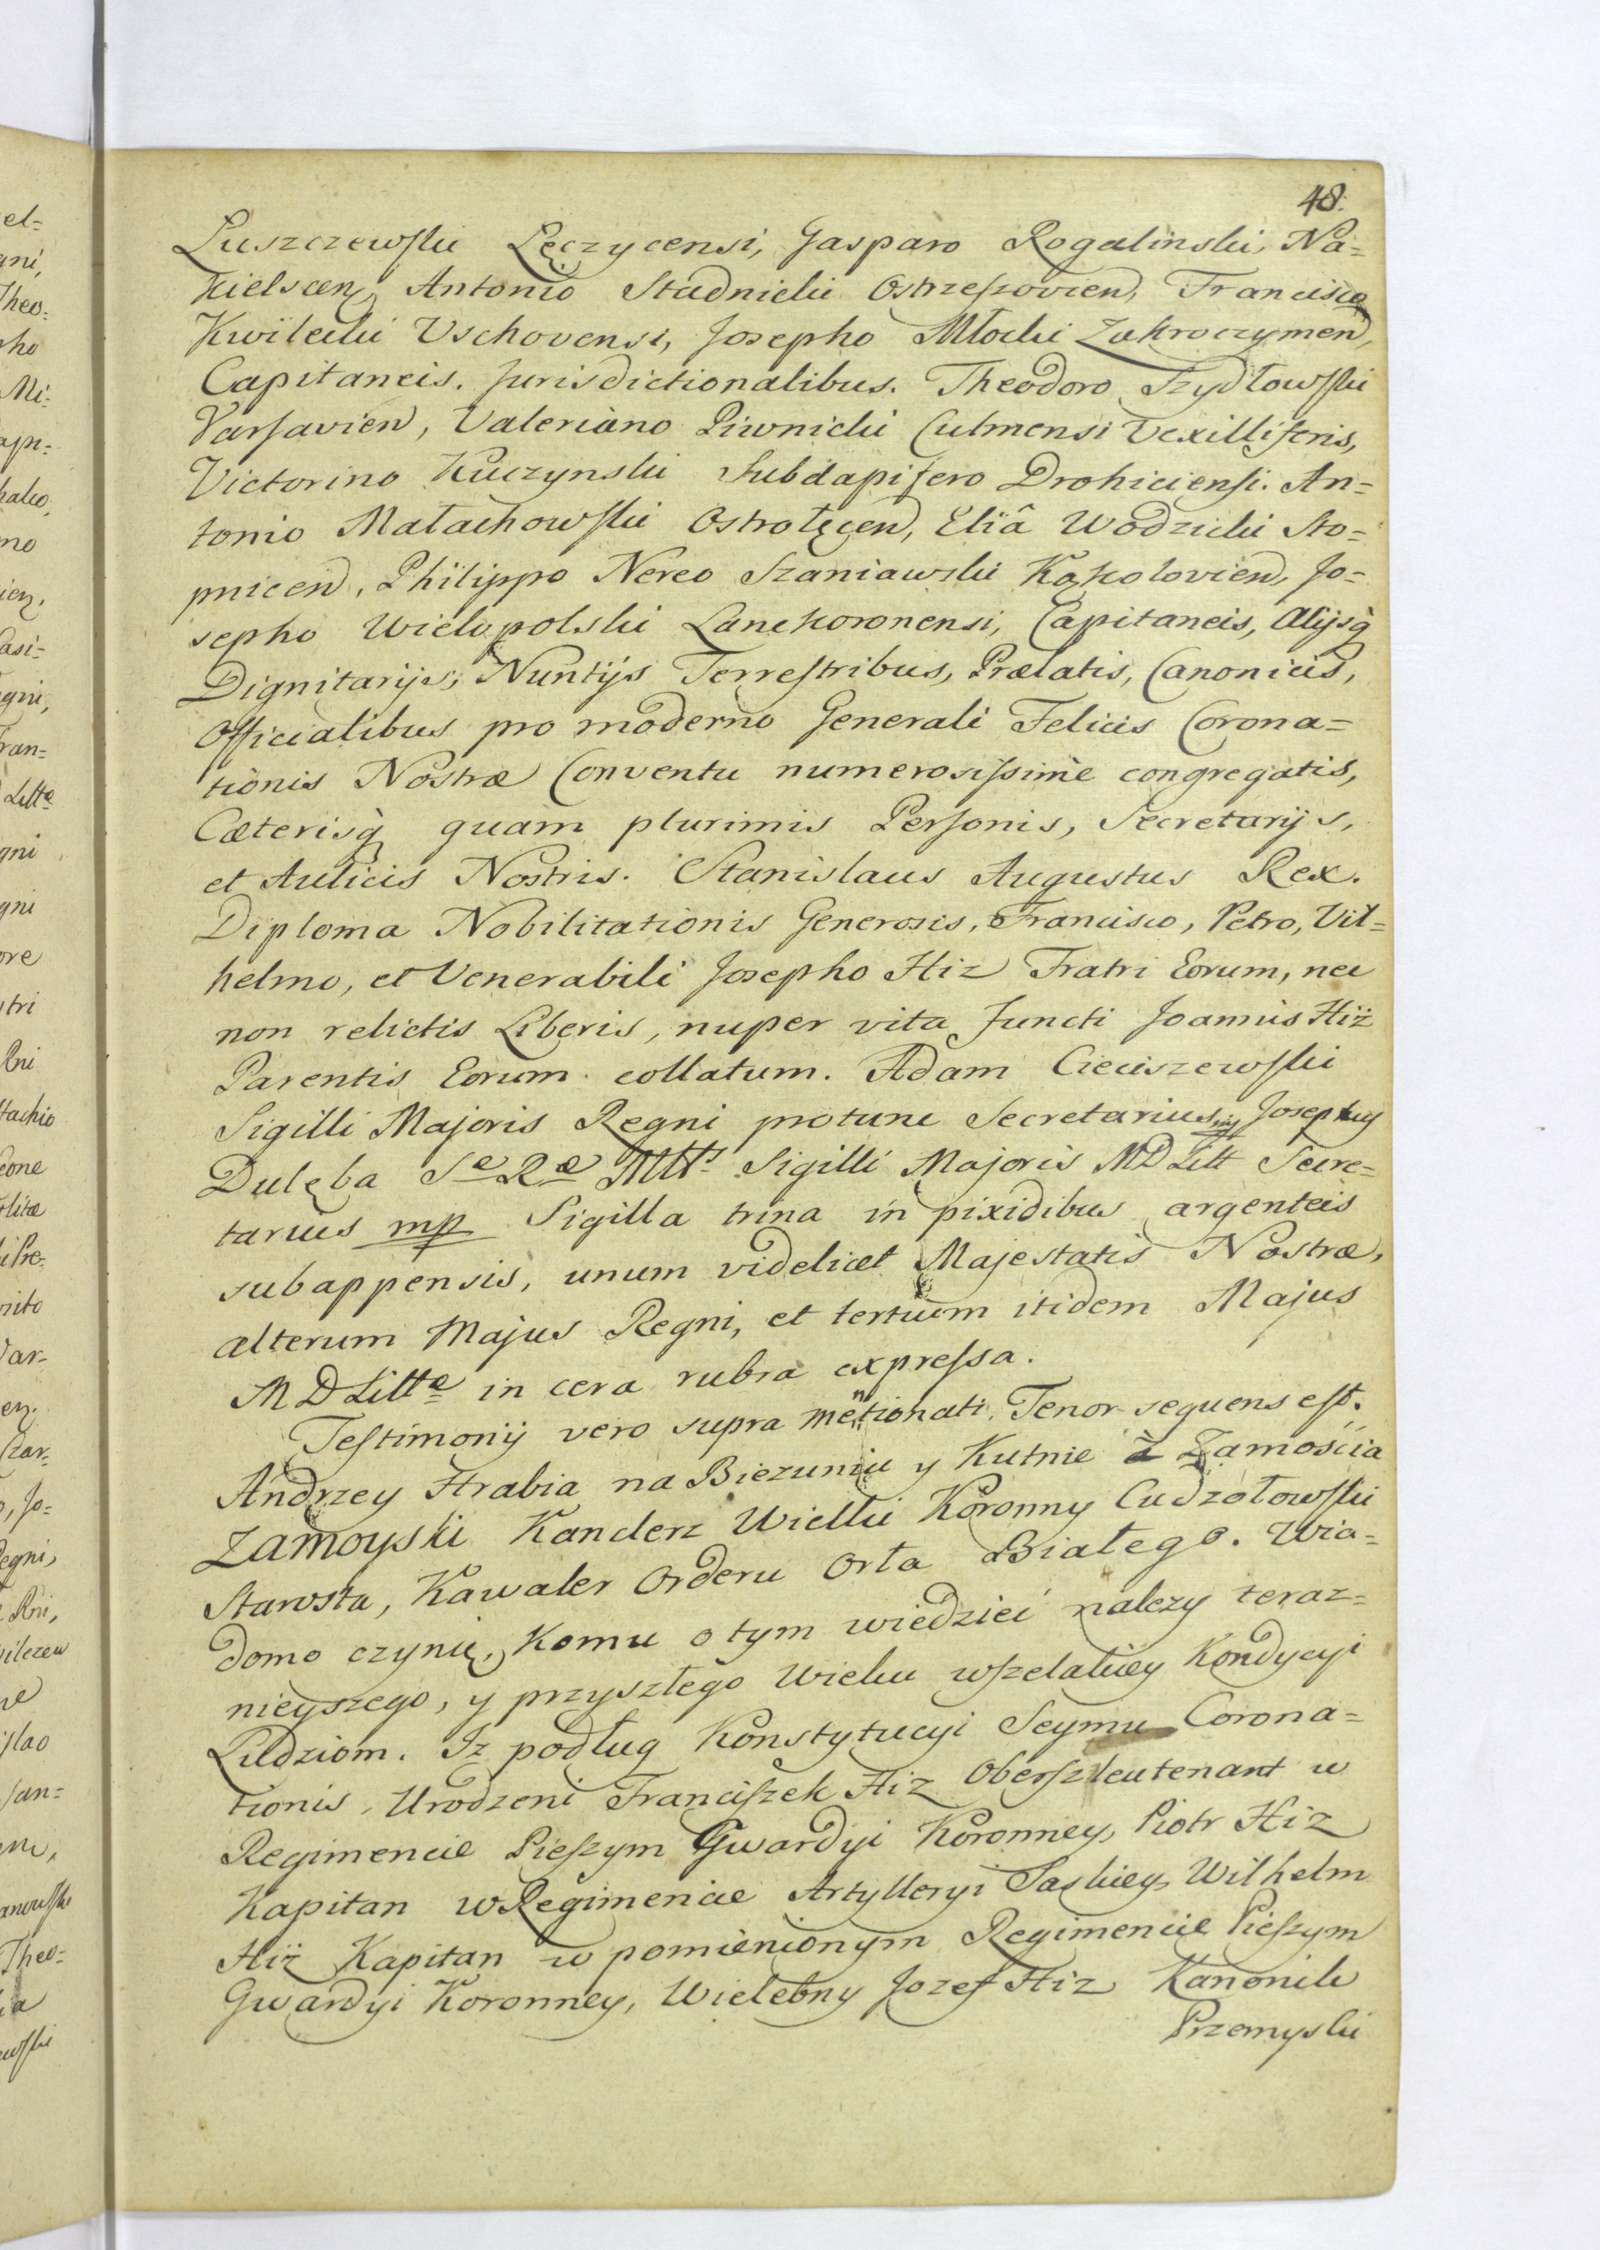 48.
Luszczewski Lęczycensi, Gasparo Rogalinski, Na=
kielscen, Antonio Studnicki Ostrzeszovien, Francisco
Kwilecki Vschovensi, Josepho Młocki Zakroczymen,
Capitaneis. Jurisdictionalibus. Theodoro Szydłowski
Varsavien, Valeriano Piwnicki Culmensi Vexilliferis,
Victorino Kuczynski Subdapifero Drohiciensi. An=
tonio Małachowski Ostrołęcen, Eliâ Wodzicki Sto=
pnicen, Philippo Nereo Szaniawski Kąkolovien, Jo=
sepho Wielopolski Lanckoronensi, Capitaneis, Alijsq̀
Dignitarijs, Nuntijs Terrestribus, Prælatis, Canonicis,
Officialibus pro moderno Generali Felicis Corona=
tionis Nostræ Conventu numerosissimè congregatis,
Cæterisq̀ quam plurimis Personis, Secretarijs,
et Aulicis Nostris. Stanislaus Augustus Rex.
Diploma Nobilitationis Generosis, Francisco, Petro, Vil=
helmo, et Venerabili Josepho Hiz Fratri Eorum, nec
non relictis Liberis, nuper vita functi Joannis Hiż
Parentis Eorum collatum. Adam Cieciszewski
Sigilli Majoris Regni protunc Secretarius mp Josephus
Dulęba Sæ Ræ Mttis Sigilli Majoris MD Litt Secre=
tarius mp Sigilla trina in pixidibus argenteis
subappensis, unum videlicet Majestatis Nostræ,
alterum Majus Regni, et tertium itidem Majus
M D Littæ in cera rubra expressa.
Testimonij vero supra mentionati Tenor sequens est.
Andrzey Hrabia na Biezuniu y Kutnie z Zamościa
Zamoyski Kanclerz Wielki Koronny Cudzołowski
Starosta, Kawaler Orderu Orła Białego. Wia=
domo czynię, komu o tym wiedzieć należy teraz=
nieyszego, y przyszłego Wieku wszelakiey Kondycyi
Ludziom. Iz podług Konstytucyi Seymu Corona=
tionis, Urodzeni Franciszek Hiz Oberszleutenant w
Regimencie Pieszym Gwardyi Koronney, Piotr Hiz
Kapitan w Regimencie Artylleryi Saskiey, Wilhelm
Hiż Kapitan w pomienionym Regimencie Pieszym
Gwardyi Koronney, Wielebny Jozef Hiz Kanonik
Przemyski